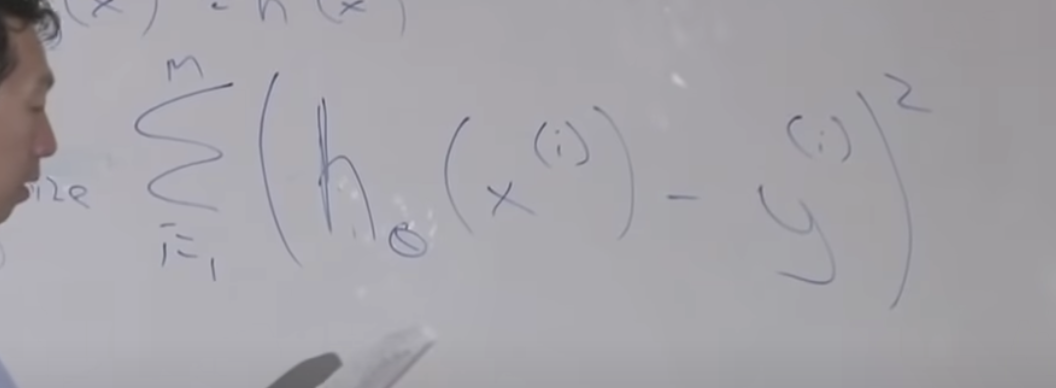 (x) = h(x)
ize \sum_{i=1}^{m} (h_θ(x^{(i)}) - y^{(i)})^2